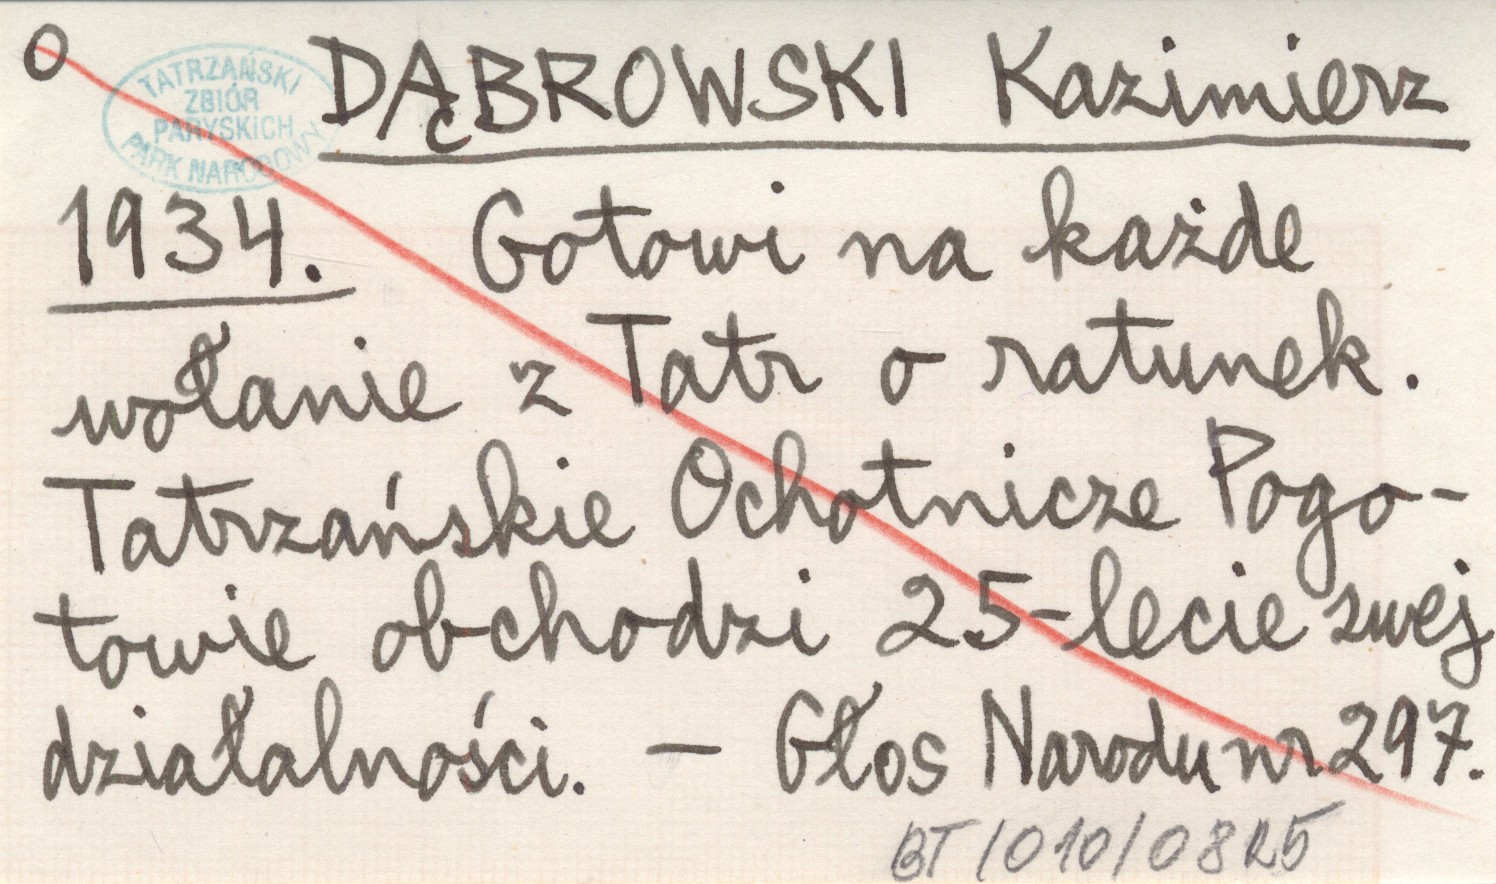 O
TATRZAŃSKI
ZBIÓR
PARYSKICH
PARK NARODOWY
DĄBROWSKI Kazimierz
1934. Gotowi na każde
wołanie z Tatr o ratunek.
Tatrzańskie Ochotnicze Pogo-
towie obchodzi 25-lecie swej
działalności. — Głos Narodu nr 297.
BT/010/0825